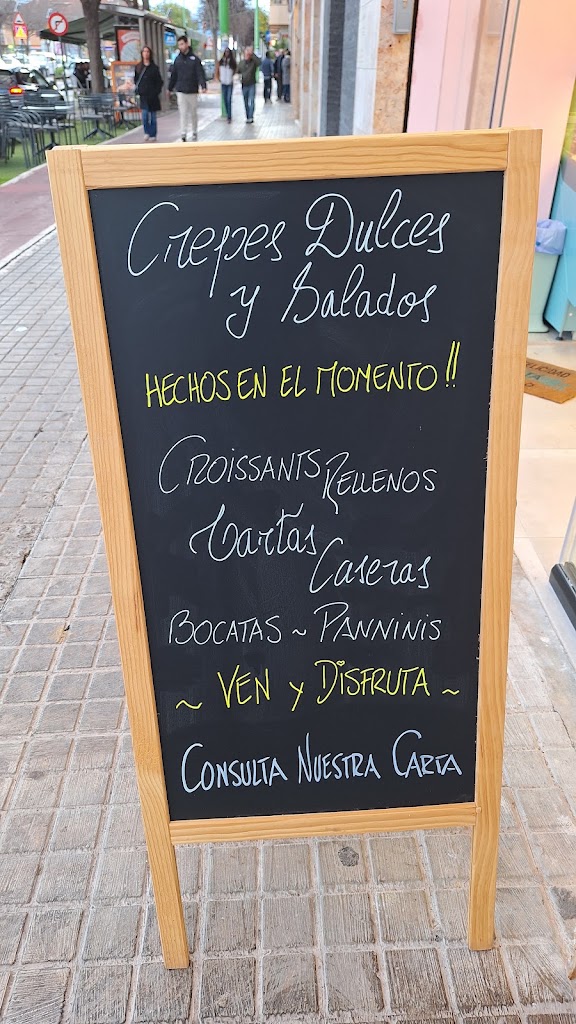 Crepes Dulces
y Salados
HECHOS EN EL MOMENTO!!
CROISSANTS RELLENOS
Tartas
Caseras
BOCATAS ~ PANNINIS
~ VEN Y DISFRUTA ~
CONSULTA NUESTRA CARTA